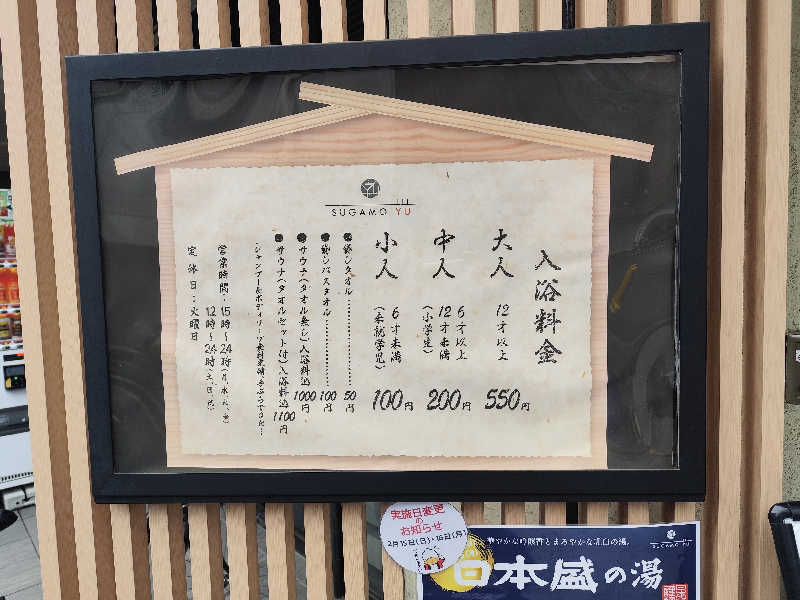 SUGAMO YU
入浴料金
大人 12才以上 550円
中人 6才以上 12才未満 (小学生) 200円
小人 6才未満 (未就学児) 100円
●貸しタオル 50円
●貸しバスタオル 100円
●サウナ(タオル無し)入浴料込 1000円
●サウナ(タオルセット付)入浴料込 1100円
シャンプー&ボディソープ無料
営業時間:15時~24時(月、水、木、金)
12時~24時(土、日、祝)
定休日:火曜日
実施日変更
の
お知らせ
2月15日(日)・16日(月)
華やかな吟醸香とまろやかな乳白の湯。
SUGAMO YU
日本盛の湯